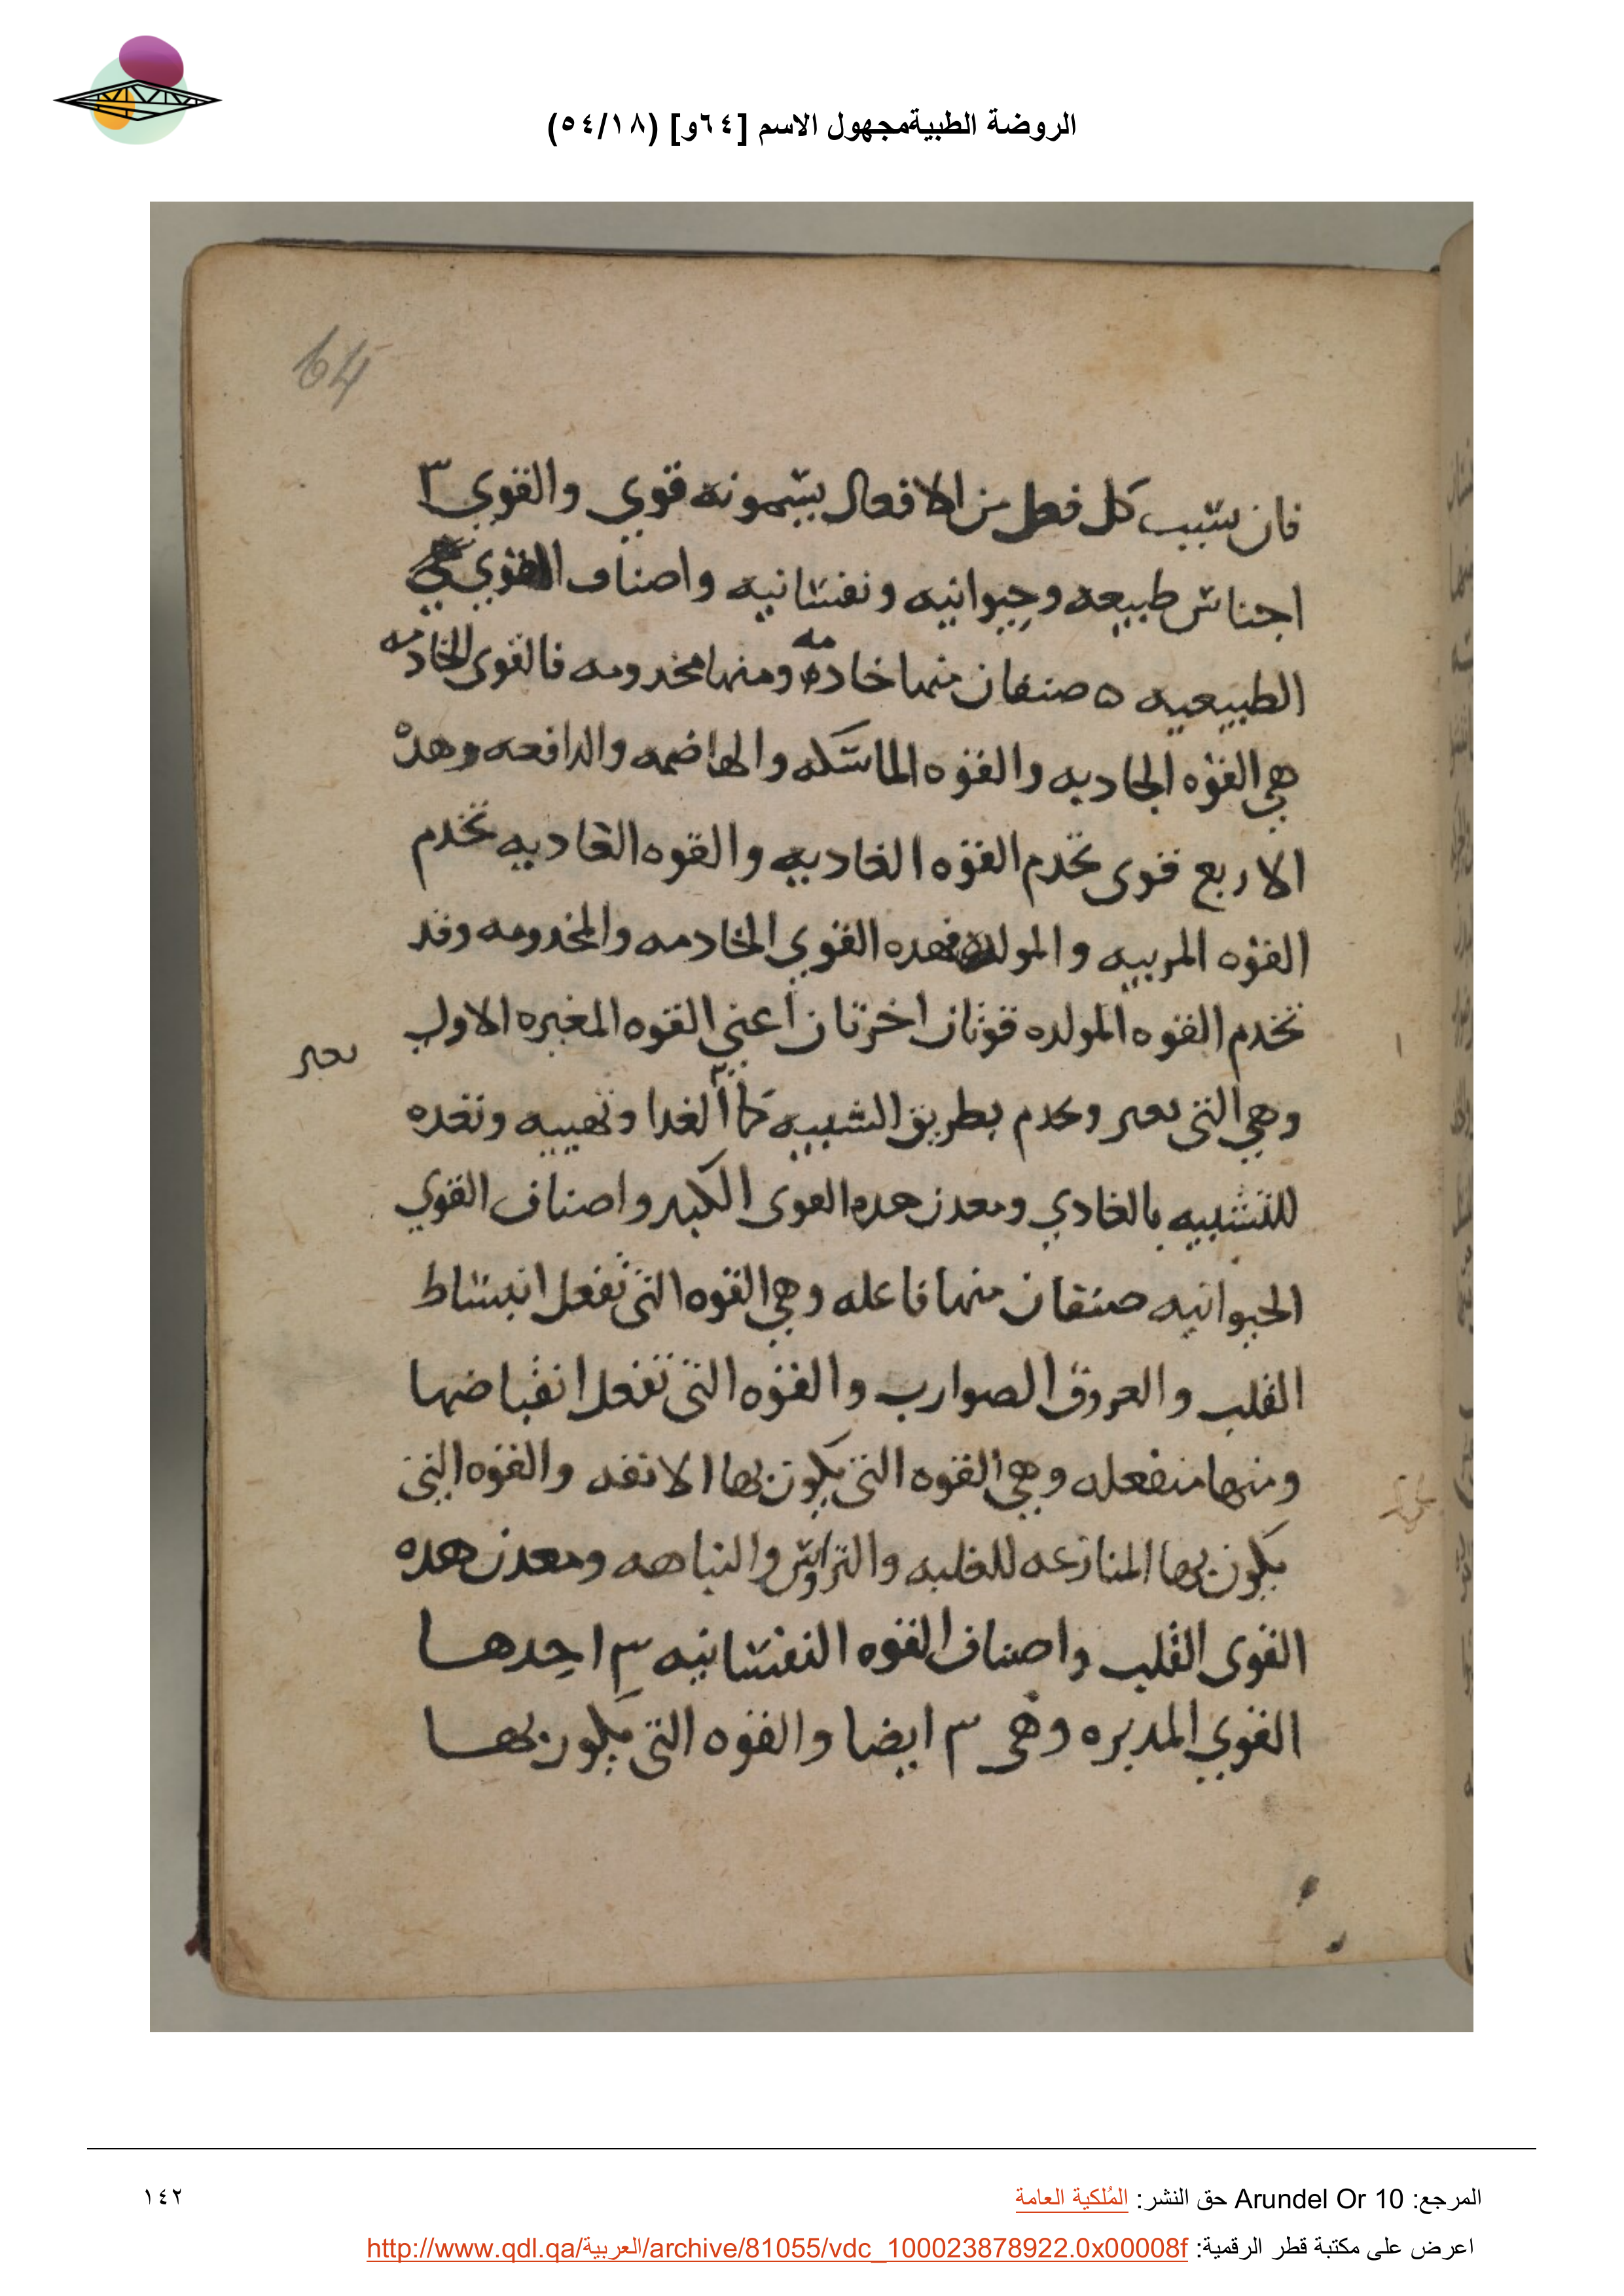 الروضة الطبيةمجهول الاسم [٦٤و] (٥٤/١٨)
64
فان سبب كل فعل من الافعال يسمونه قوي والقوي ٣
اجناس طبيعه وحيوانيه ونفسانيه واصناف القوي
الطبيعيه ٥ صنفان منها خادمه ومنها مخدومه فالقوى الخادمه
هي القوه الجاديه والقوه الماسكه والهاضمه والدافعه وهده
الاربع قوى تخدم القوه الغاديه والقوه الغاديه تخدم
القوه المربيه والمولده فهده القوي الخادمه والمخدومه وقد
تخدم القوه المولده قوتان اخرتان اعني القوه المغيره الاولي
وهي التى وتخدم بطريق الشبيه الغدا وتهييه وتعده
للتشبيه بالغادي ومعدن هده القوى الكبد واصناف القوي
الحيوانيه صنفان منها فاعله وهي القوه التى تفعل انبساط
القلب والعروق الصوارب والقوه التى تفعل انقباضها
ومنها منفعله وهي القوه التى يكون بها الانفه والقوه التى
يكون بها المنازعه للغلبه والتراوس والنباهه ومعدن هده
القوى القلب واصناف القوه النفسانيه ٣ احدها
القوي المدبره وهى ٣ ايضا والقوه التى يكون بها
المرجع: Arundel Or 10 حق النشر: المُلكية العامة
١٤٢
اعرض على مكتبة قطر الرقمية: http://www.qdl.qa/العربية/archive/81055/vdc_100023878922.0x00008f